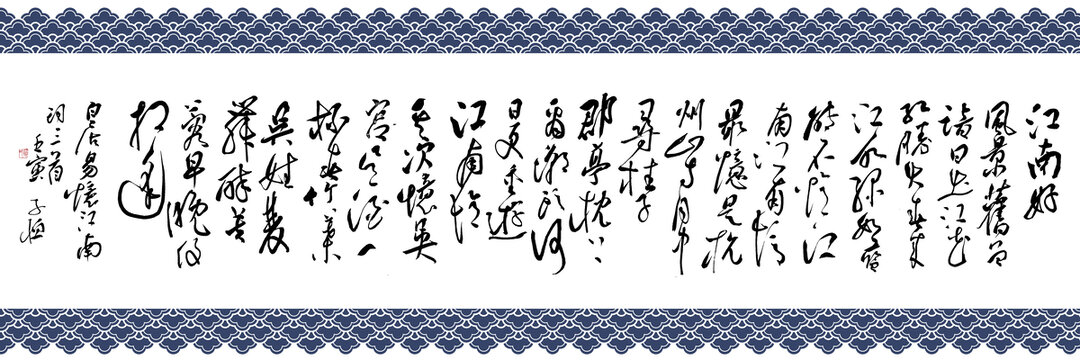 江南好
風景舊曾
諳日出江花
紅勝火春來
江水綠如藍
能不憶江
南江南憶
最憶是杭
州山寺月中
尋桂子
郡亭枕上
看潮頭何
日更重遊
江南憶
其次憶吳
宮吳酒一
杯春竹葉
吳娃雙
舞醉芙
蓉早晚復
相逢
白居易憶江南
詞三首
壬寅 子恒